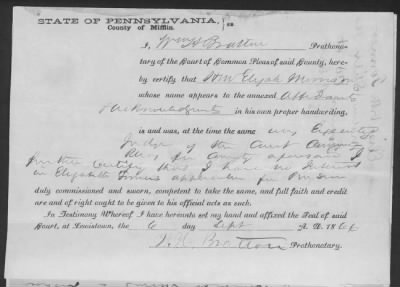 STATE OF PENNSYLVANIA,
County of Mifflin. } ss.
I, Wm H Bratton Prothono-
tary of the Court of Common Pleas of said County, here-
by certify that Hon Elijah
whose name appears to the annexed Affidavit
& Acknowledgments in his own proper handwriting,
is and was, at the time the same was
Judge of the Court
for County aforesaid I
further certify that I have no Interest
in Elizabeth application for Pension
duly commissioned and sworn, competent to take the same, and full faith and credit
are and of right ought to be given to his official acts as such.
In Testimony Whereof I have hereunto set my hand and affixed the Seal of said
Court, at Lewistown, the 6 day Sept A. D. 18
W. H. Bratton Prothonotary.